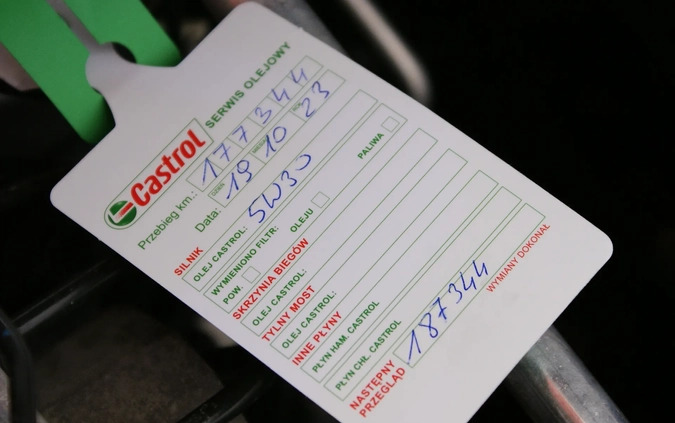 Castrol SERWIS OLEJOWY
Przebieg km.: 177344
Data: 19 10 23
SILNIK
OLEJ CASTROL: 5W30
WYMIENIONO FILTR:
POW. OLEJU PALIWA
SKRZYNIA BIEGÓW
OLEJ CASTROL:
TYLNY MOST
OLEJ CASTROL:
INNE PŁYNY
PŁYN HAM. CASTROL
PŁYN CHŁ. CASTROL
NASTĘPNY PRZEGLĄD 187344
WYMIANY DOKONAŁ